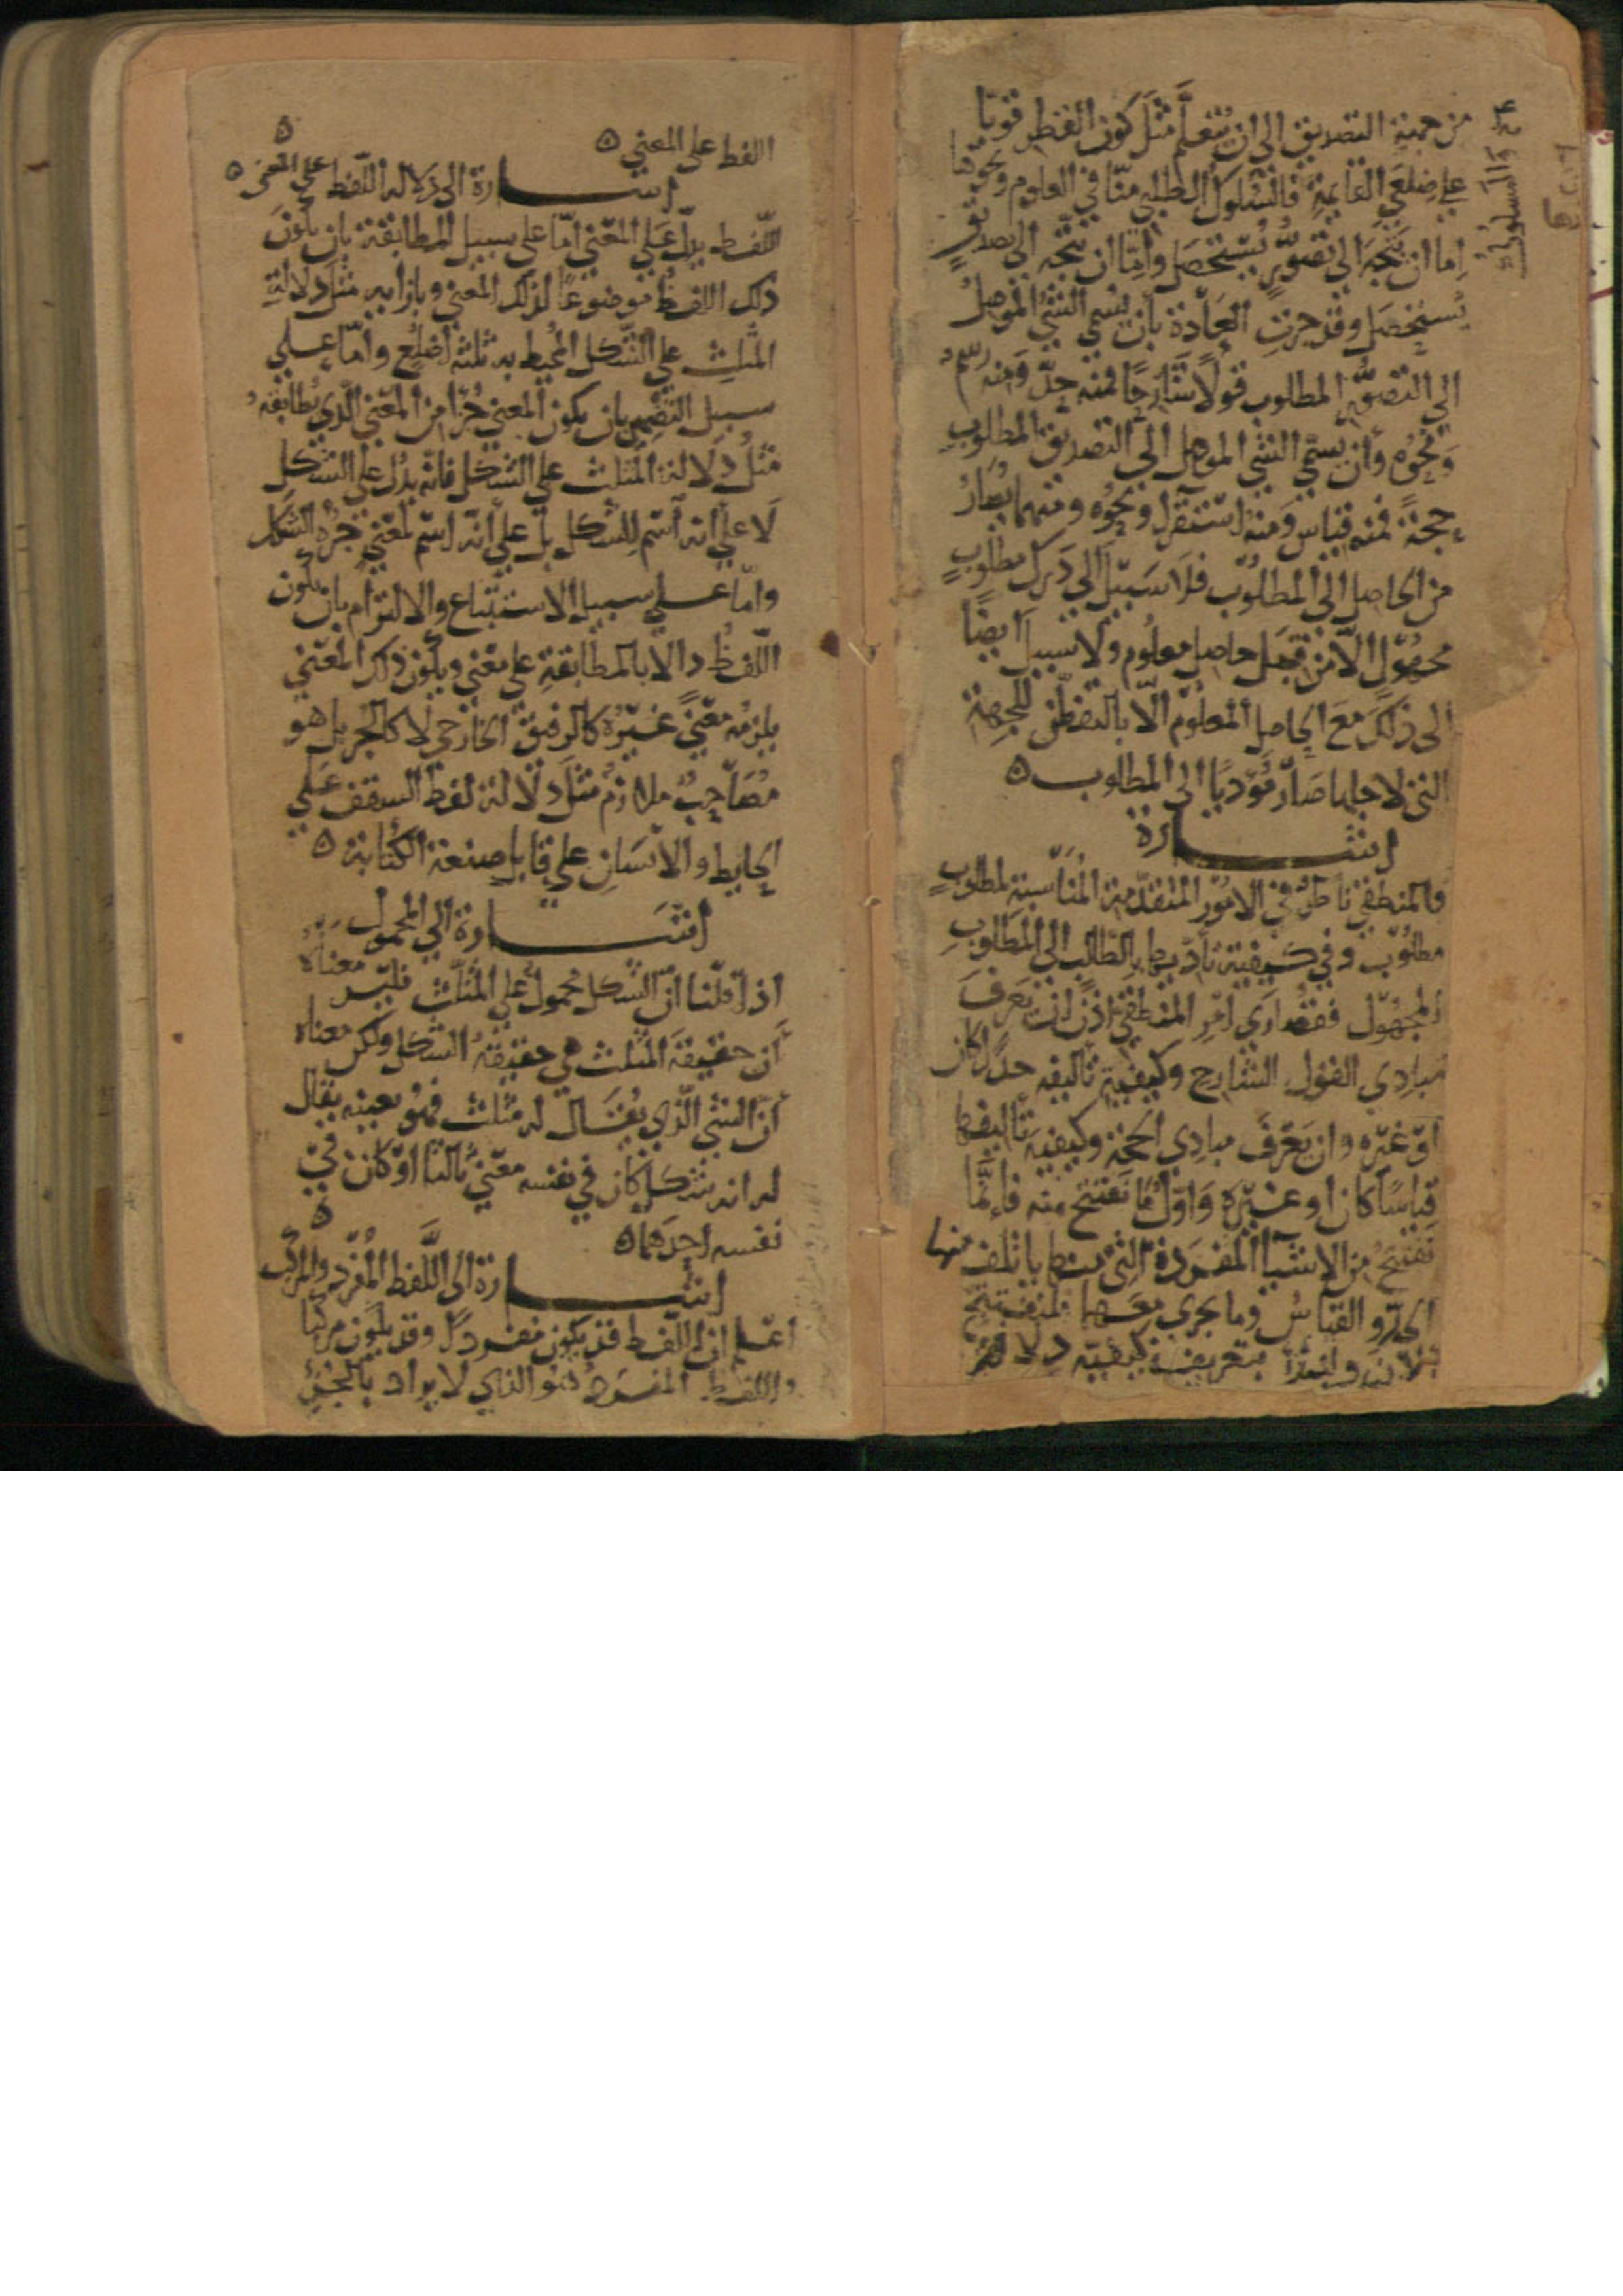 من جهة التصديق الى ان يتعلم مثل كون القطر قويا
على ضلعي القايمة فالسلوك الطلبي منا في العلوم ونحوها
اما ان يتجه الى تصور يستحصل واما ان يتجه الى تصديق
يستحصل وقد جرت العادة بان يسمى الشي الموصل
الى التصور المطلوب قولا شارحا فمنه حد ومنه رسم
ونحوه وان يسمى الشي الموصل الى التصديق المطلوب
حجة فمنه قياس ومنه استقرا ونحوه ومنهما يصار
من الحاصل الى المطلوب فلا سبيل الى درك مطلوب
مجهول الا من قبل حاصل معلوم ولا سبيل ايضا
الى ذلك مع الحاصل المعلوم الا بالتفطن للجهة
التي لاجلها صار مؤديا الى المطلوب ه
اشارة
فالمنطقي ناظر في الامور المتقدمة المناسبة لمطلوب
مطلوب وفي كيفية تاديها بالطالب الى المطلوب
المجهول فقصارى امر المنطقي اذن ان يعرف
مبادي القول الشارح وكيفية تاليفه حدا كان
او غيره وان يعرف مبادي الحجة وكيفية تاليفها
قياسا كان او غيره واول ما نفتتح منه فانما
نفتتح من الاشيا المفردة التي ياتلف منها
الحد والقياس وما يجري معهما فلنفتتح
الان ولنبدأ بتعريف كيفية دلالة
اللفظ على المعنى ه
ه
اشارة الى دلالة اللفظ على المعنى ه
اللفظ يدل على المعنى اما على سبيل المطابقة بان يكون
ذلك اللفظ موضوعا لذلك المعنى وبازايه مثل دلالة
المثلث على الشكل المحيط به ثلثة اضلع واما على
سبيل التضمن بان يكون المعنى جزا من المعنى الذي يطابقه
مثل دلالة المثلث على الشكل فانه يدل على الشكل
لا على انه اسم للشكل بل على انه اسم لمعنى جزه الشكل
واما على سبيل الاستتباع والالتزام بان يكون
اللفظ دالا بالمطابقة على معنى ويكون ذلك المعنى
يلزمه معنى غيره كالرفيق الخارجي لا كالجز بل هو
مصاحب ملازم مثل دلالة لفظ السقف على
الحايط والانسان على قابل صنعة الكتابة ه
اشارة الى المحمول
اذا قلنا ان الشكل محمول على المثلث فليس معناه
ان حقيقة المثلث هي حقيقة الشكل ولكن معناه
ان الشي الذي يقال له مثلث فهو بعينه يقال
له انه شكل كان في نفسه معنى ثالثا او كان في
نفسه احدهما ه
ه
اشارة الى اللفظ المفرد والمركب
اعلم ان اللفظ قد يكون مفردا وقد يكون مركبا
واللفظ المفرد هو الذي لا يراد بالجز